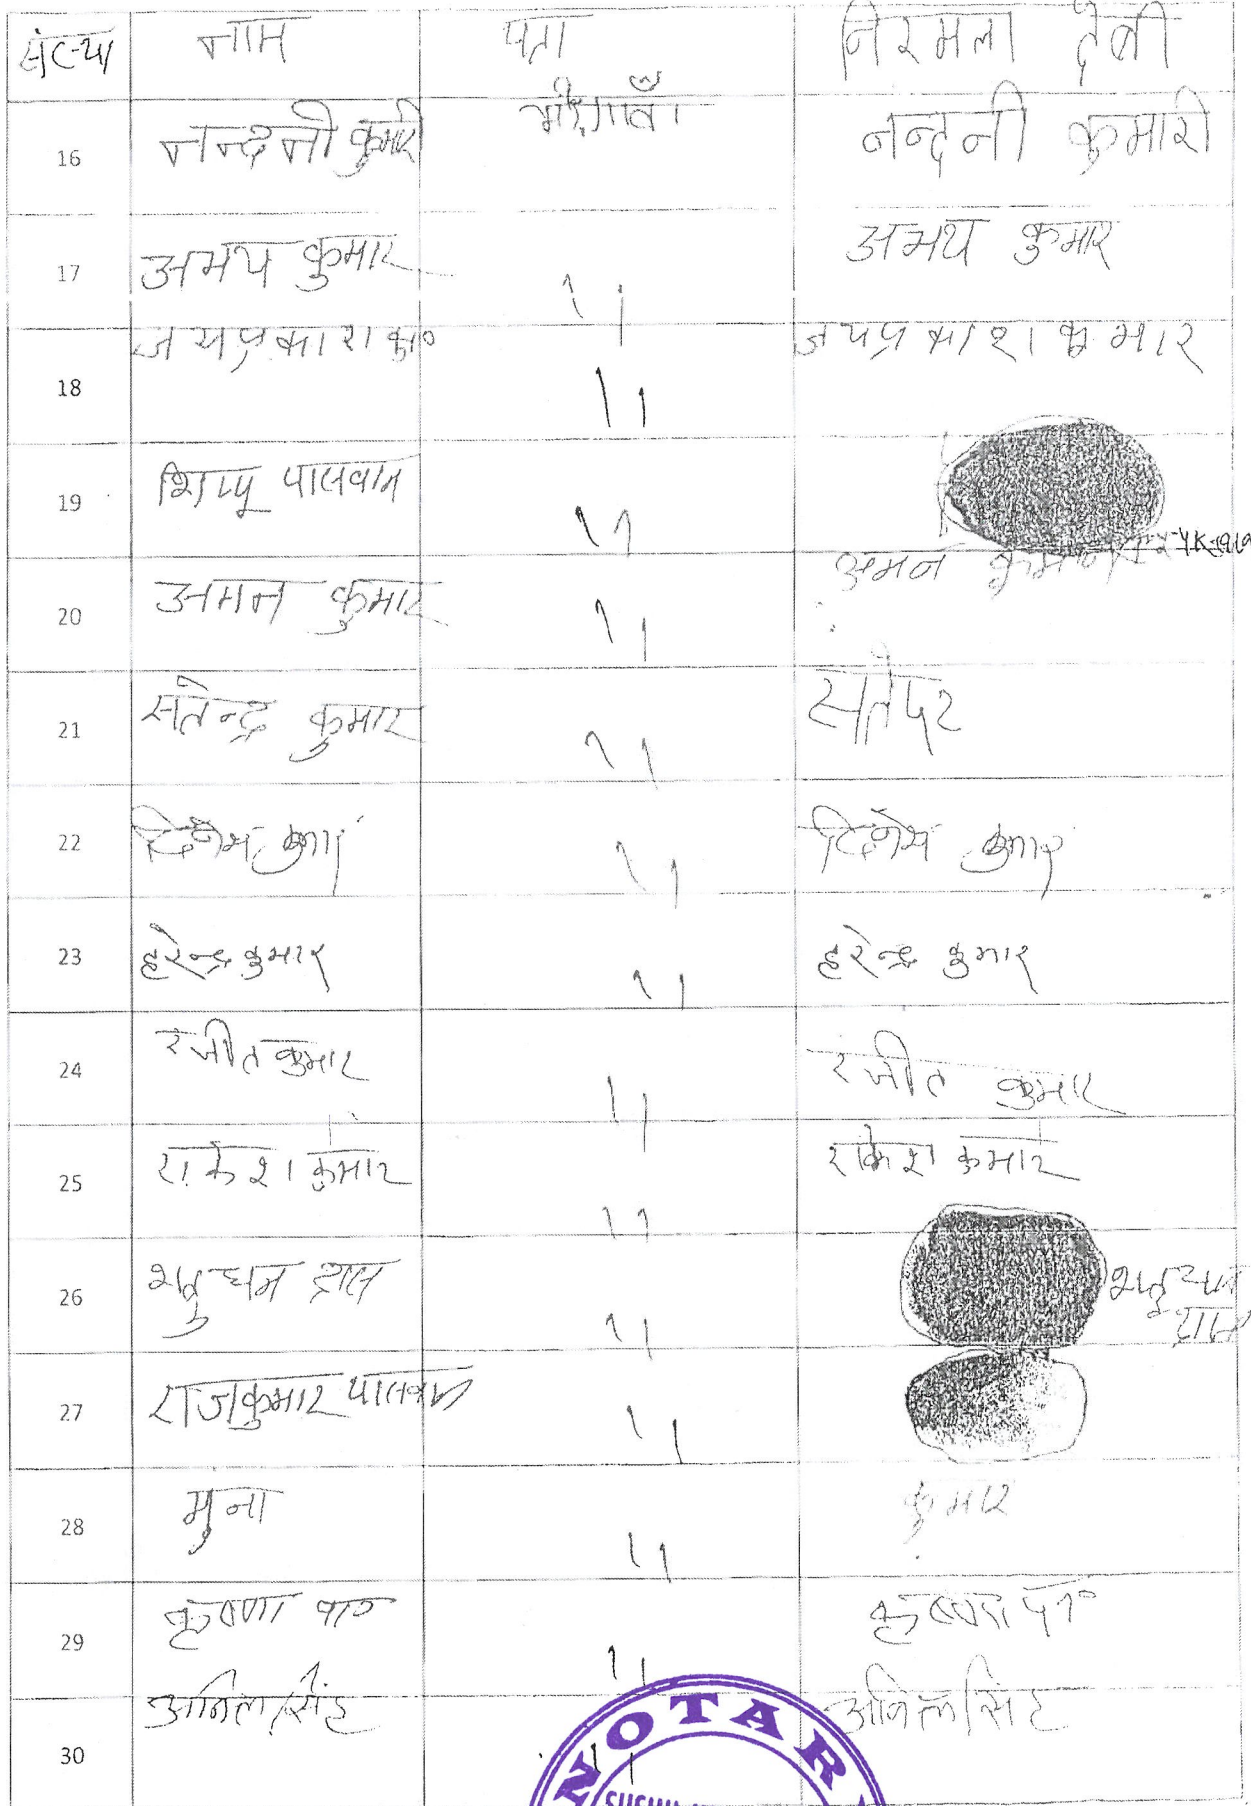 संख्या नाम पता निरमला देवी
16 नन्दनी कुमारी नन्दनी कुमारी
17 अभय कुमार ,, अभय कुमार
18 जयप्रकाश कु० ,, जयप्रकाश कुमार
19 पासवान ,,
20 अमन कुमार ,, अमन कुमार
21 सतेन्द्र कुमार ,,
22 दिनेश कुमार ,, दिनेश कुमार
23 हरेन्द्र कुमार ,, हरेन्द्र कुमार
24 रंजीत कुमार ,, रंजीत कुमार
25 राकेश कुमार ,, राकेश कुमार
26 शत्रुधन दास ,,
27 राजकुमार पासवान ,,
28 मुना ,, कुमार
29 कृष्णा पा० ,,
30 अनिल सिंह ,, अनिल सिंह
NOTAR